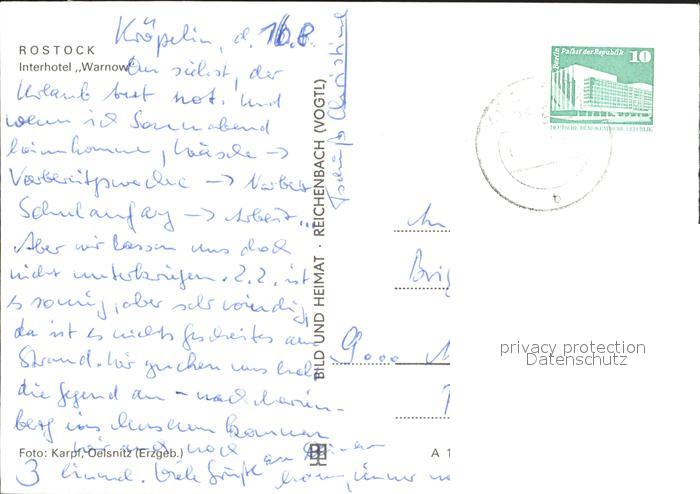 ROSTOCK
Interhotel „Warnow"
Kröpelin, d. 16.8.
Du siehst, der
Urlaub tut not. Und
wenn ich Sonnabend
heimkomme, Wäsche ->
Vorbereitgswoche ->
Schulanfang -> Arbeit...
Aber wir lassen uns doch
nicht unterkriegen. Z.Z. ist
es sonnig, aber sehr windig,
da ist es nichts Gescheites am
Strand. Wir gucken uns halt
die Gegend an - nach
ins Museum kommen
wir auch noch
3 Viele Grüße
immer
tschüß Christine
BILD UND HEIMAT · REICHENBACH (VOGTL)
Foto: Karpf, Oelsnitz (Erzgeb.)
A 1
Berlin Palast der Republik
10
DEUTSCHE DEMOKRATISCHE REPUBLIK
b
An
Brig
9000
privacy protection
Datenschutz